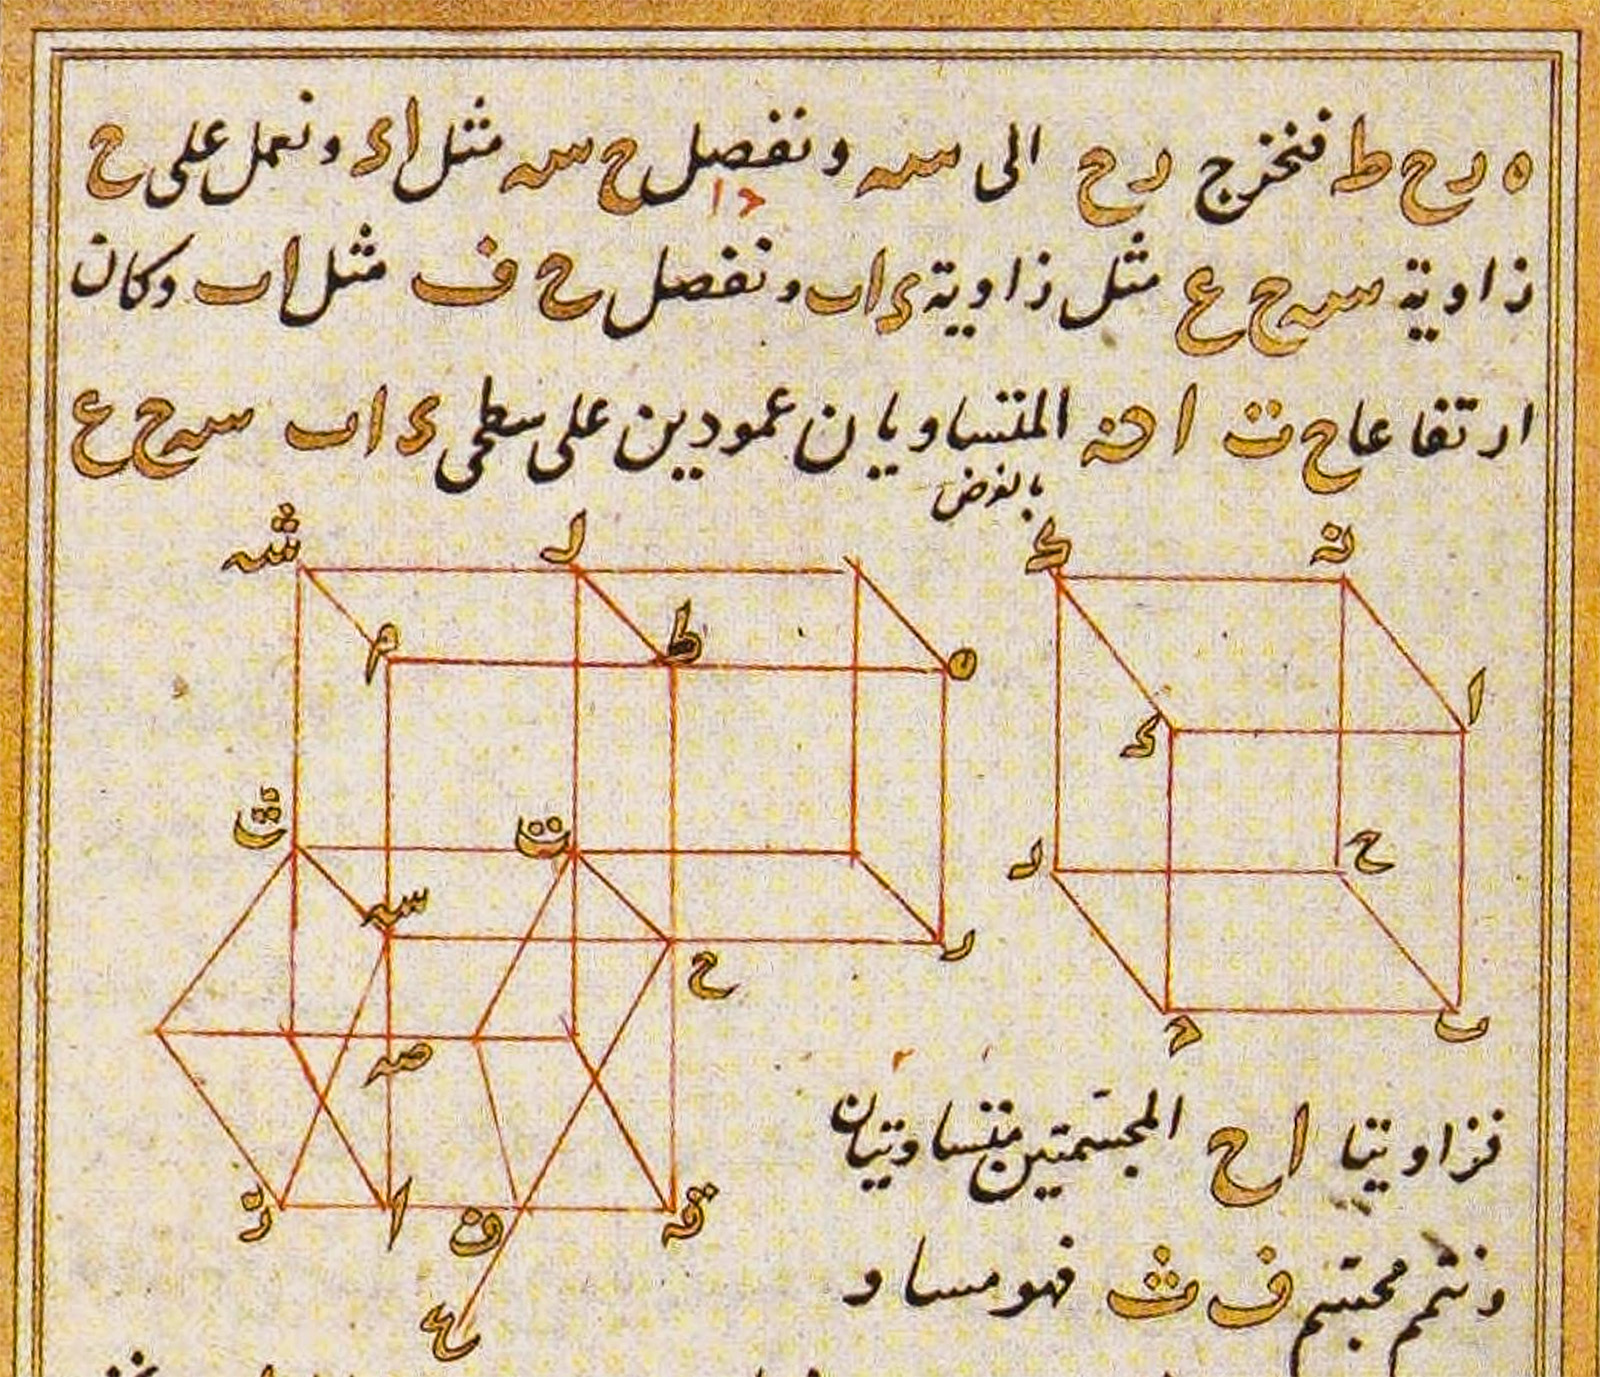 ه ر ح ط فنخرج ر ح الى سه ونفصل ح سه مثل ا ء ونعمل على ح
زاوية سه ح ع مثل زاوية ء ا ب ونفصل ح ف مثل ا ب وكان
ارتفاعا ح ت ا نه المتساويان عمودين على سطحى ء ا ب سه ح ع
بالفرض
شه ل ك نه
م ط ه ا
ء
ث ت ل ح
سه ح ر
صه د ب
فزاويتا ا ح المجسمتين متساويتان
ز ا ف قه
ونتمم مجسم ف ث فهو مساو
ع